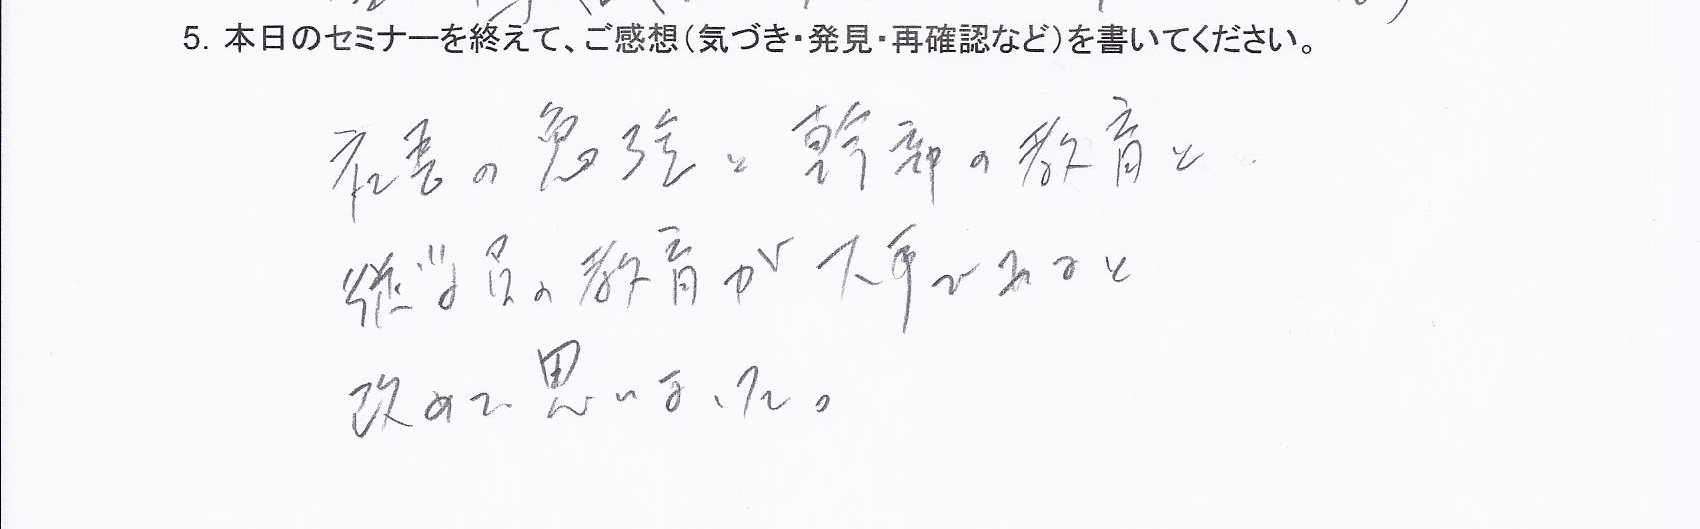 5. 本日のセミナーを終えて、ご感想（気づき・発見・再確認など）を書いてください。
社長の勉強と幹部の教育と
従業員の教育が大事であると
改めて思いました。